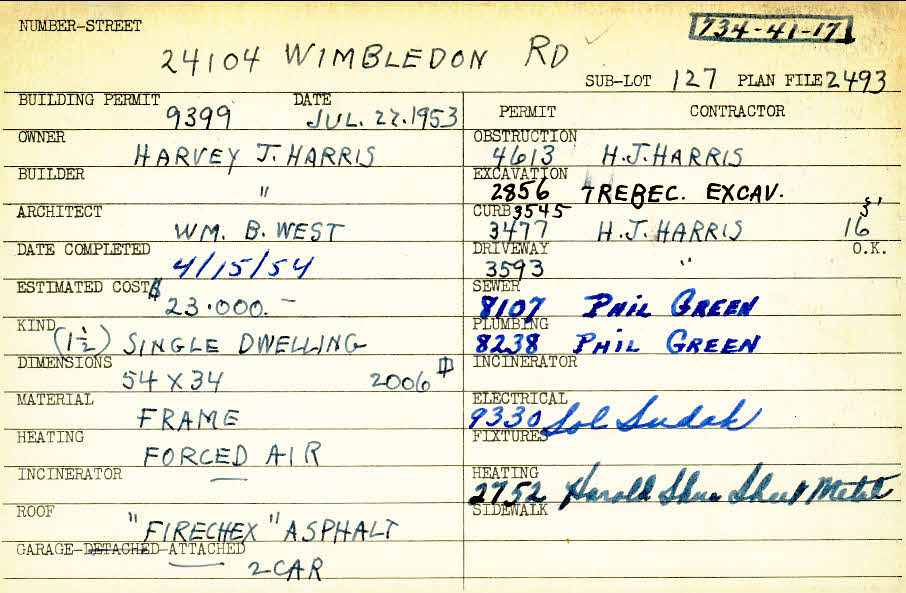 NUMBER-STREET
734-41-17
24104 WIMBLEDON RD
SUB-LOT 127 PLAN FILE 2493
BUILDING PERMIT DATE
9399 JUL. 27.1953
OWNER
HARVEY J. HARRIS
BUILDER
"
ARCHITECT
WM. B. WEST
DATE COMPLETED
4/15/54
ESTIMATED COST $
23.000. –
KIND
(1½) SINGLE DWELLING
DIMENSIONS
54 X 34 2006
MATERIAL
FRAME
HEATING
FORCED AIR
INCINERATOR
ROOF
"FIRECHEX" ASPHALT
GARAGE-DETACHED-ATTACHED
2 CAR
PERMIT CONTRACTOR
OBSTRUCTION
4613 H.J. HARRIS
EXCAVATION
2856 TREBEC. EXCAV.
CURB 3545
3477 H.J. HARRIS 16
DRIVEWAY O.K.
3593 "
SEWER
8107 PHIL GREEN
PLUMBING
8238 PHIL GREEN
INCINERATOR
ELECTRICAL
9330 Sol Sudak
FIXTURES
HEATING
2752 Harold Sheet Metal
SIDEWALK